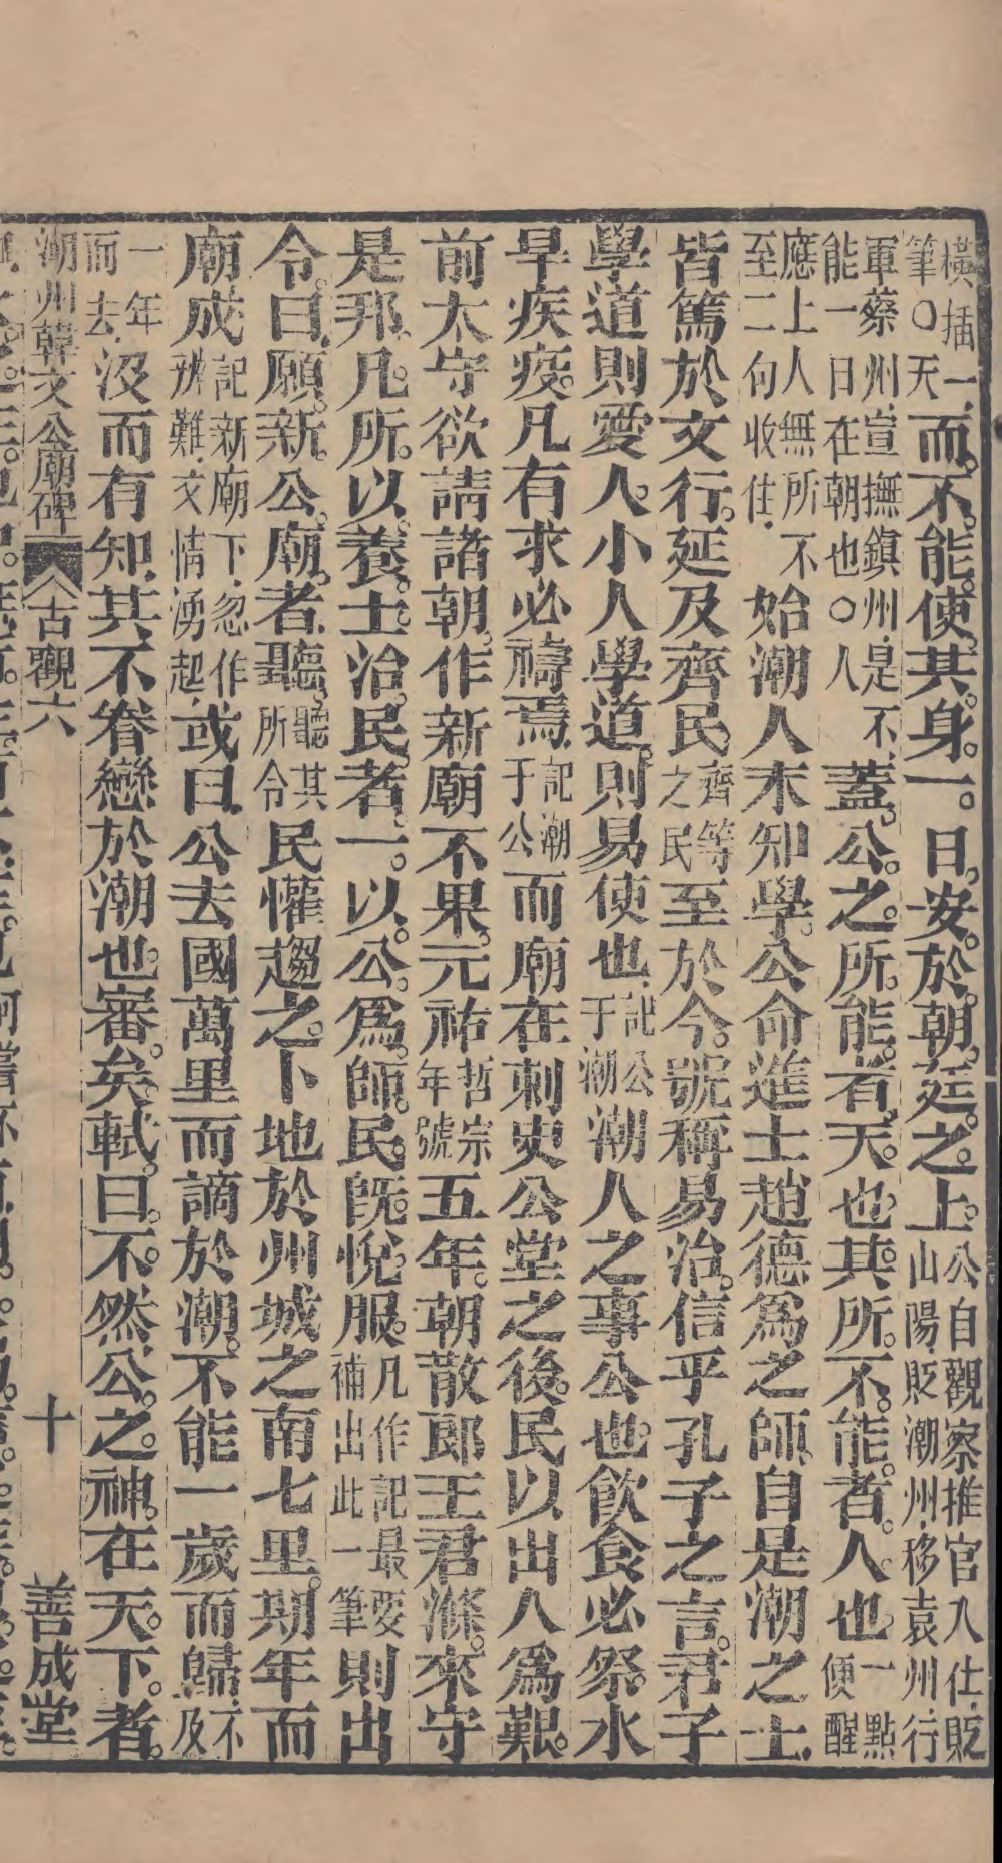 橫插一筆○天而不能使其身一日安於朝廷之上公自觀察推官入仕貶山陽貶潮州移袁州行
軍蔡州宣撫鎮州是不能一日在朝也○人蓋公之所能者天也其所不能者人也一點便醒
應上人無所不至二句收住始潮人未知學公命進士趙德爲之師自是潮之士
皆篤於文行延及齊民齊等之民至於今號稱易治信乎孔子之言君子
學道則愛人小人學道則易使也記公于潮潮人之事公也飲食必祭水
旱疾疫凡有求必禱焉記潮于公而廟在刺史公堂之後民以出入爲艱
前太守欲請諸朝作新廟不果元祐哲宗年號五年朝散郎王君滌來守
是邦凡所以養士治民者一以公爲師民旣悅服凡作記最要補出此一筆則出
令曰願新公廟者聽聽其所令民懽趨之卜地於州城之南七里期年而
廟成記新廟下忽作辨難文情湧起或曰公去國萬里而謫於潮不能一歲而歸不及
一年而去沒而有知其不眷戀於潮也審矣軾曰不然公之神在天下者
潮州韓文公廟碑 古觀六 十 善成堂